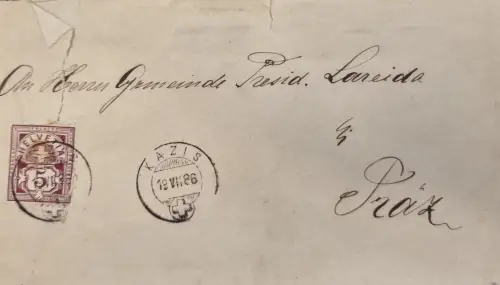 An Herrn Gemeinde Presid. Lareida
Präz
HELVETIA
5
KAZIS
19 VII 86